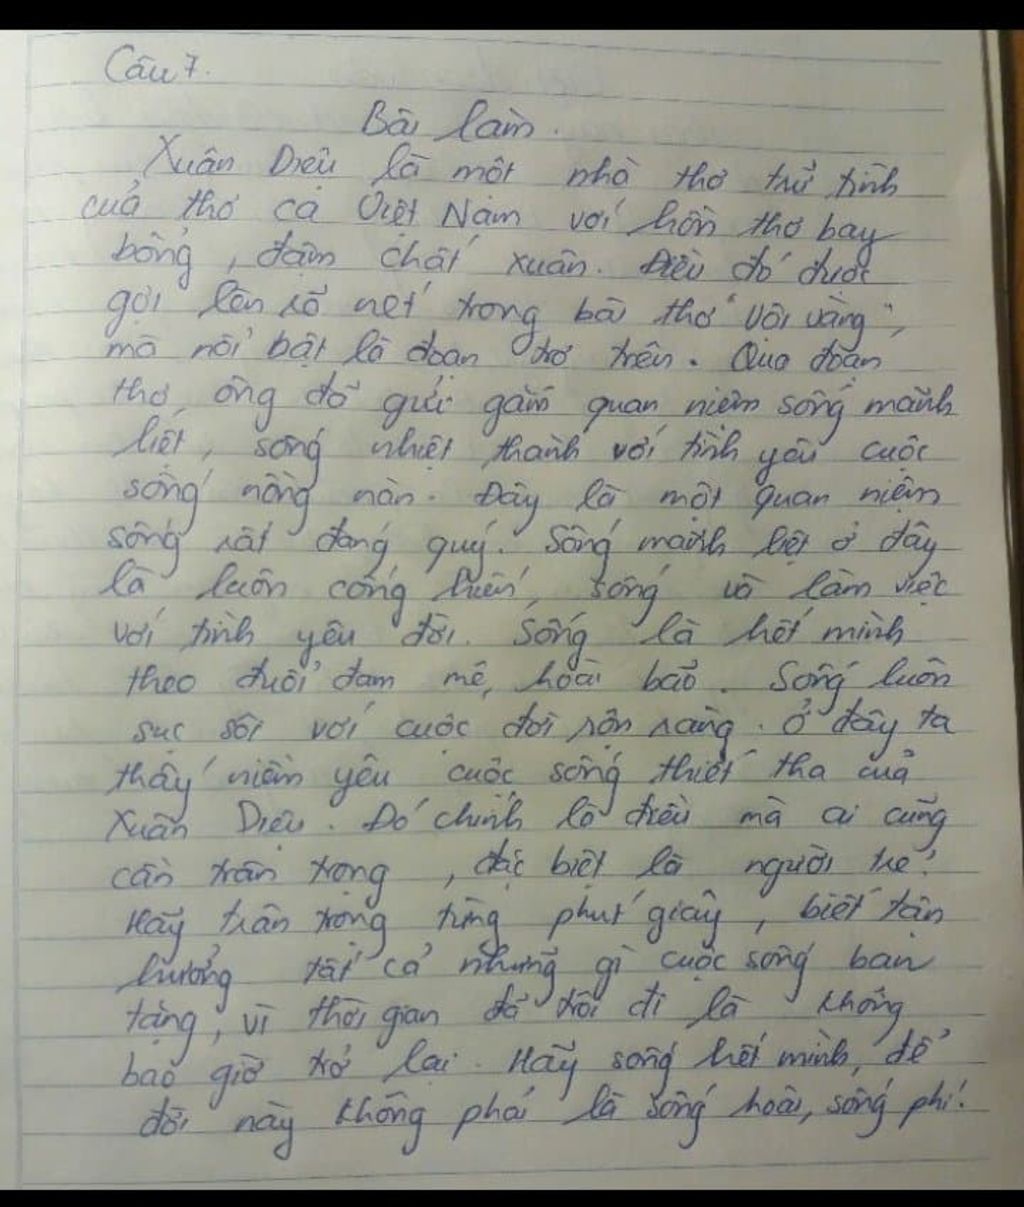 Câu 7.
Bài làm.
Xuân Diệu là một nhà thơ trữ tình
của thơ ca Việt Nam với hồn thơ bay
bổng, đậm chất xuân. Điều đó được
gợi lên rõ nét trong bài thơ "Vội vàng",
mà nổi bật là đoạn thơ trên. Qua đoạn
thơ, ông đã gửi gắm quan niệm sống mãnh
liệt, sống nhiệt thành với tình yêu cuộc
sống nồng nàn. Đây là một quan niệm
sống rất đáng quý. Sống mãnh liệt ở đây
là luôn cống hiến, sống và làm việc
với tình yêu đời. Sống là hết mình
theo đuổi đam mê, hoài bão. Sống luôn
sục sôi với cuộc đời rộn ràng. Ở đây ta
thấy niềm yêu cuộc sống thiết tha của
Xuân Diệu. Đó chính là điều mà ai cũng
cần trân trọng, đặc biệt là người trẻ.
Hãy trân trọng từng phút giây, biết tận
hưởng tất cả những gì cuộc sống ban
tặng, vì thời gian đã trôi đi là không
bao giờ trở lại. Hãy sống hết mình, để
đời này không phải là sống hoài, sống phí.